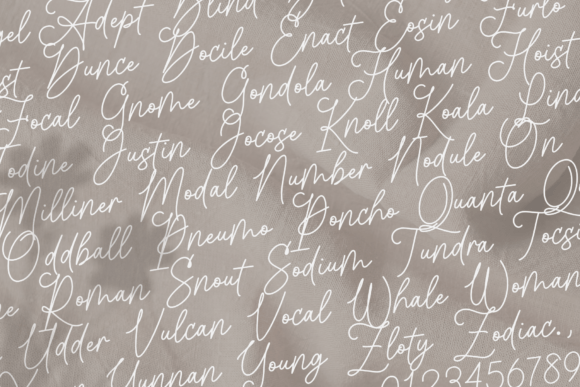 Adept Blind
Dunce Docile Enact Eosin Furlo
Focal Gnome Gondola Human Hoist
Justin Jocose Knoll Koala
Milliner Modal Number Nodule On
Oddball Pneumo Poncho Quanta
Roman Snout Sodium Tundra
Udder Vulcan Vocal Whale Woman
Yunnan Young Zloty Zodiac.,
0123456789